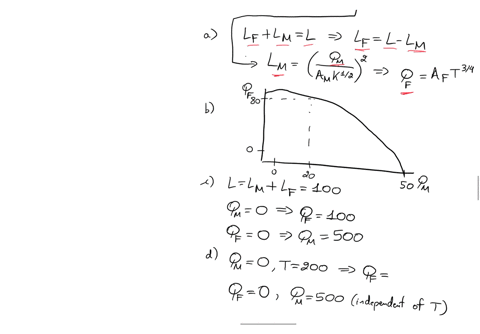 a) L_F + L_M = L ⇒ L_F = L - L_M
L_M = (Q_M / A_M K^{1/2})^2 ⇒ Q_F = A_F T^{3/4}
b) Q_F
80
0
0 20 50 Q_M
c) L = L_M + L_F = 100
Q_M = 0 ⇒ Q_F = 100
Q_F = 0 ⇒ Q_M = 500
d) Q_M = 0, T = 200 ⇒ Q_F =
Q_F = 0, Q_M = 500 (independent of T)